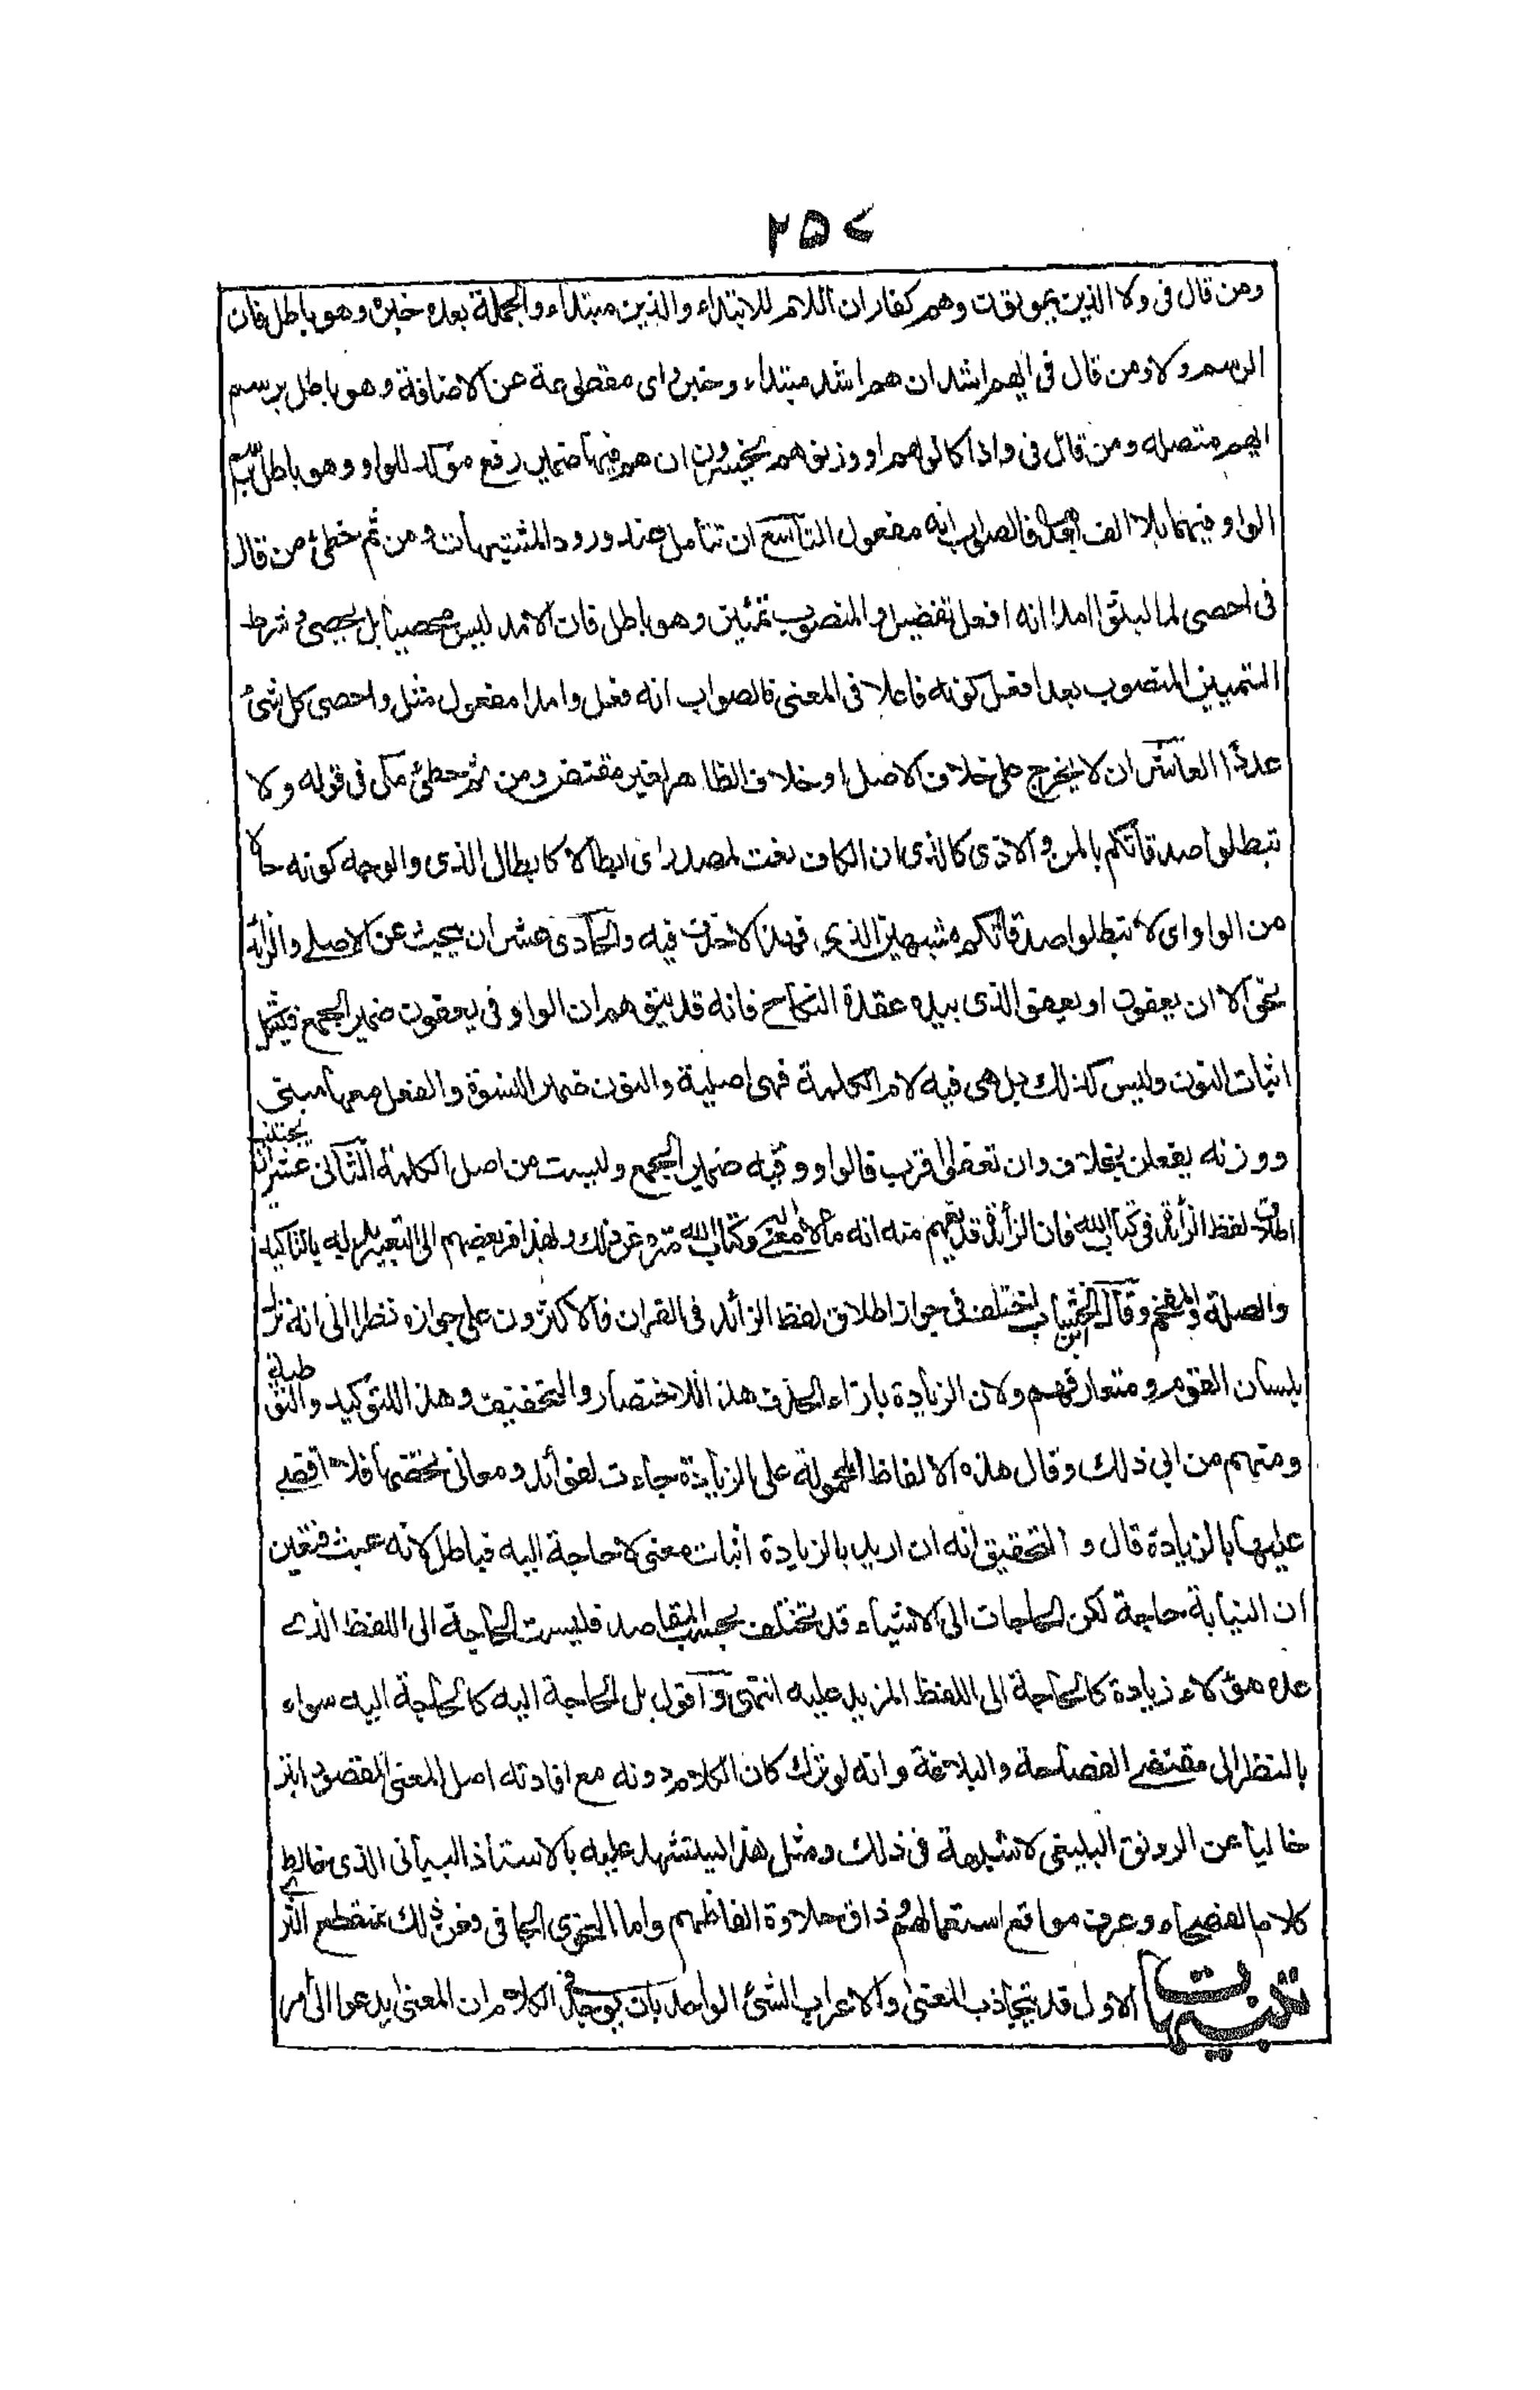 ٢٥٧
ومن قال فى ولا الذين يموتون وهم كفار ان اللام للابتداء والذين مبتداء والجملة بعده خبره وهو باطل فان
الرسم ولا ومن قال فى ايهم اشد ان هم اشد مبتداء وخبر واى مقطوعة عن الاضافة وهو باطل برسم
ايهم متصله ومن قال فى واذا كالوهم او وزنوهم يخسرون ان هم فيها ضمير رفع موكد للواو وهو باطل برسم
الواو فيهما بلا الف بعدها فالصواب انه مفعول التاسع ان تتأمل عند ورود المشتبهات ومن ثم خطئ من قال
فى احصى لما لبثوا امدا انه افعل تفضيل والمنصوب تمييز وهو باطل فان الامد ليس محصيا بل يحصى و شرط
التمييز المنصوب بعد افعل كونه فاعلا فى المعنى فالصواب انه فعل وامدا مفعول مثل واحصى كل شئ
عددا العاشر ان لا يخرج على خلاف الاصل او خلاف الظاهر لغير مقتض ومن ثم خطئ مكى فى قوله ولا
تبطلوا صدقاتكم بالمن والاذى كالذى ان الكاف نعت لمصدر اى ابطالا كابطال الذى والوجه كونه حالا
من الواو اى لا تبطلوا صدقاتكم مشبهين الذى فهذا لا حذف فيه والحادى عشر ان يبحث عن الاصلى والزائد
نحو الا ان يعفون او يعفو الذى بيده عقدة النكاح فانه قد يتوهم ان الواو فى يعفون ضمير الجمع فيشكل
اثبات النون وليس كذلك بل هى فيه لام الكلمة فهى اصلية والنون ضمير النسوة والفعل معها مبنى
ووزنه يفعلن بخلاف وان تعفوا اقرب فالواو فيه ضمير الجمع وليست من اصل الكلمة الثانى عشر ان يجتنب
اطلاق لفظ الزائد فى كتاب الله فان الزائد قد يفهم منه انه لا معنى له وكتاب الله منزه عن ذلك ولهذا فر بعضهم الى التعبير بدله بالتاكيد
والصلة والمقحم وقال ابن الخشاب اختلف فى جواز اطلاق لفظ الزائد فى القران فالاكثرون على جوازه نظرا الى انه نزل
بلسان القوم ومتعارفهم ولان الزيادة بازاء الحذف هذا للاختصار والتخفيف وهذا للتوكيد والتوطية
ومنهم من ابى ذلك وقال هذه الالفاظ المحمولة على الزيادة جاءت لفوائد ومعانى تخصها فلا اقضى
عليها بالزيادة قال والتحقيق انه ان اريد بالزيادة اثبات معنى لا حاجة اليه فباطل لانه عبث فتعين
ان الينا به حاجة لكن الحاجات الى الاشياء قد تختلف بحسب المقاصد فليست الحاجة الى اللفظ الذى
عده هؤلاء زيادة كالحاجة الى اللفظ المزيد عليه انتهى واقول بل الحاجة اليه كالحاجة اليه سواء
بالنظر الى مقتضى الفصاحة والبلاغة وانه لو ترك كان الكلام دونه مع افادته اصل المعنى المقصود ابتر
خاليا عن الرونق البليغى لا شبهة فى ذلك ومثل هذا ليستشهد عليه بالاستاذ البيانى الذى خالط
كلام الفصحاء وعرف مواقع استعمالهم وذاق حلاوة الفاظهم واما النحوى الجافى فعن ذلك بمنقطع الثرى
تنبيهات الاول قد يتجاذب المعنى والاعراب الشئ الواحد بان يوجد فى الكلام ان المعنى يدعوا الى امر